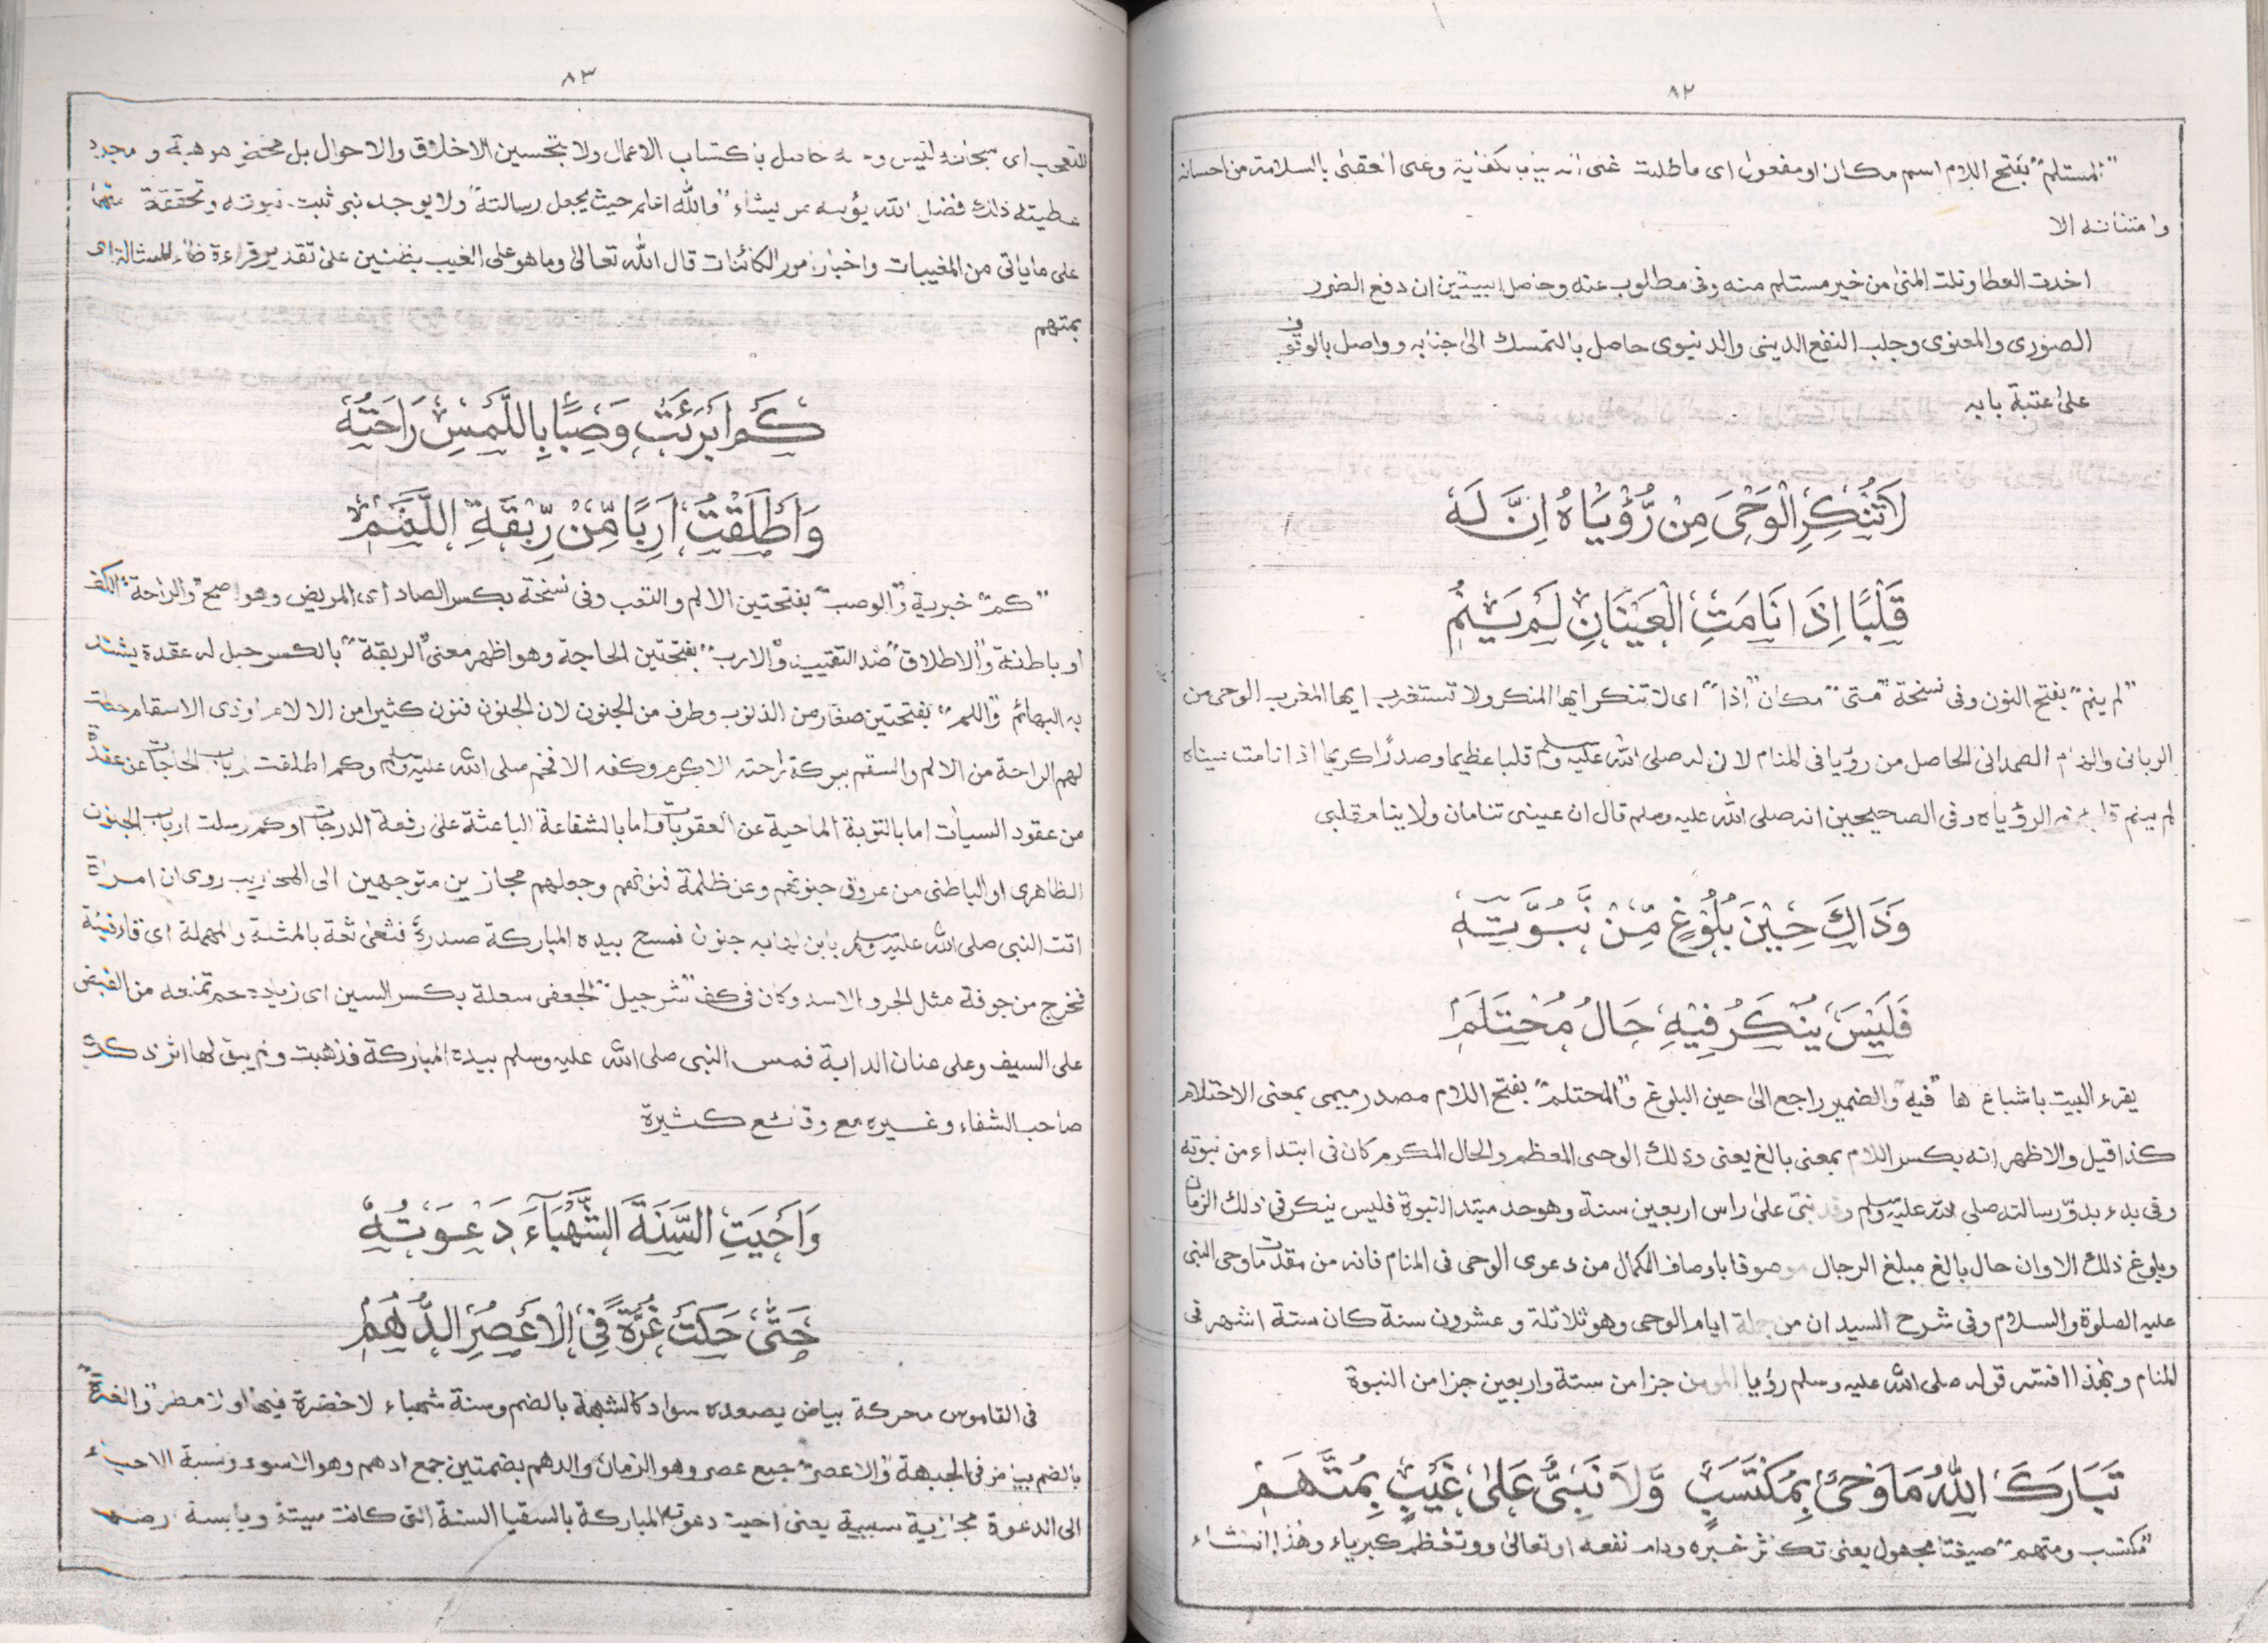 ٨٢
"المستلم" بفتح اللام اسم مكان او مفعول اى ما طلبت غنى الدارين وغنى العقبى بالسلامة من احسانه
وامتنانه الا
اخذت العطا ونلت المنى من خير مستلم منه وفى مطلوب عنه وحاصل البيتين ان دفع الضرر
الصورى والمعنوى وجلب النفع الدينى والدنيوى حاصل بالتمسك الى جنابه وواصل بالوقوف
على عتبة بابه
لَاتُنْكِرِ الْوَحْىَ مِنْ رُّؤْيَاهُ اِنَّ لَهٗ
قَلْبًا اِذَا نَامَتِ الْعَيْنَانِ لَمْ يَنَمٖ
"لم ينم" بفتح النون وفى نسخة "متى" مكان "اذا" اى لا تنكر ايها المنكر ولا تستغرب ايها المغرب الوحى من
الربانى الصمدانى الحاصل من رؤيا فى المنام لان له صلى الله عليه وسلم قلبا عظيما وصدرًا كريما اذا نامت عيناه
لم ينم الرؤياه وفى الصحيحين انه صلى الله عليه وسلم قال ان عينى تنامان ولا ينام قلبى
وَذَاكَ حِيْنَ بُلُوْغٍ مِّنْ نَّبُوَّتِهٖ
فَلَيْسَ يُنْكَرُ فِيْهِ حَالُ مُحْتَلَمٖ
يقرء البيت باشباع ها "فيه" والضمير راجع الى حين البلوغ و"المحتلم" بفتح اللام مصدر ميمى بمعنى الاحتلام
كذا قيل والاظهر انه بكسر اللام بمعنى بالغ يعنى وذلك الوحى المعظم والحال المكرم كان فى ابتداء من نبوته
وفى بدء بدوّ رسالته صلى الله عليه وسلم وقد نبئ على راس اربعين سنة وهو حد مبتدا النبوة فليس ينكر فى ذلك الزمان
وبلوغ ذلك الاوان حال بالغ مبلغ الرجال موصوفا باوصاف الكمال من دعوى الوحى فى المنام فانه من مقدمات وحى النبى
عليه الصلوة والسلام وفى شرح السيد ان من جملة ايام الوحى وهو ثلاثة وعشرون سنة كان ستة اشهر فى
المنام وبهذا فسر قوله صلى الله عليه وسلم رؤيا المومن جزا من ستة واربعين جزا من النبوة
تَبَارَكَ اللّٰهُ مَا وَحْىٌ بِمُكْتَسَبٍ وَّلَا نَبِىٌّ عَلٰى غَيْبٍ بِمُتَّهَمٖ
"مكتسب ومتهم" صيغتا مجهول يعنى تكاثر خيره ودام نفعه او تعالى وتعظم كبرياء وهذا انشاء
٨٣
للتعجب اى سبحانه ليس وحيه حاصل باكتساب الاعمال ولا بتحسين الاخلاق والاحوال بل محض موهبة ومجرد
عطيته ذلك فضل الله يؤتيه من يشاء "والله اعلم حيث يجعل رسالته" ولا يوجد نبى ثبت نبوته وتحققة متهما
على ما ياتى من المغيبات واخبار امور الكائنات قال الله تعالى وما هو على الغيب بظنين على تقدير قراءة ظاء المشالة اى
بمتهم
كَمْ اَبْرَئَتْ وَصِبًا بِاللَّمْسِ رَاحَتُهٗ
وَاَطْلَقَتْ اَرِبًا مِّنْ رِّبْقَةِ اللَّمَمٖ
"كم" خبرية و"الوصب" بفتحتين الالم والتعب وفى نسخة بكسر الصاد اى المريض وهو اصح "والراحة" الكف
او باطنة و"الاطلاق" ضد التقييد و"الارب" بفتحتين الحاجة وهو اظهر معنى "الربقة" بالكسر حبل له عقدة يشتد
به البهائم و"اللمم" بفتحتين صغار من الذنوب وطرف من الجنون لان الجنون فنون كثيرا من الالام اوذى الاسقام حصلت
لهم الراحة من الالم والسقم ببركة راحته الاكرم وكفه الافخم صلى الله عليه وسلم وكم اطلقت ارباب الحاجات عن عقدة
من عقود السيأت اما بالتوبة الماحية عن العقوبات واما بالشفاعة الباعثة على رفعة الدرجات او كم رسلت ارباب الجنون
الظاهرى او الباطنى من عروق جنونهم وعن ظلمة فنونهم وجعلهم مجازين متوجهين الى المحاريب روى ان امراة
اتت النبى صلى الله عليه وسلم بابن لها به جنون فمسح بيده المباركة صدرهٗ فثغى ثعة بالمثلثة والمهملة اى قاء قيئة
فخرج من جوفة مثل الجرو الاسد وكان فى كف "شرجيل" الجعفى سعلة بكسر السين اى زيادة تمنعه من القبض
على السيف وعلى عنان الدابة فمس النبى صلى الله عليه وسلم بيده المباركة فذهبت ولم يبق لها اثر ذكره
صاحب الشفاء وغيره مع وقائع كثيرة
وَاَحْيَتِ السَّنَةَ الشَّهْبَاءَ دَعْوَتُهٗ
حَتّٰى حَكَتْ غُرَّةً فِى الْاَعْصُرِ الدُّهُمٖ
فى القاموس محركة بياض يصعده سواد كالشبهة بالضم وسنة شهباء لا خضرة فيها او لا مطر "والغرة"
بالضم بياض فى الجبهة و"الاعصر" جمع عصر وهو الزمان والدهم بضمتين جمع ادهم وهو الاسود ونسبة الاحياء
الى الدعوة مجازية سببية يعنى احيت دعوته المباركة بالسقيا السنة التى كانت ميتة ويابسة